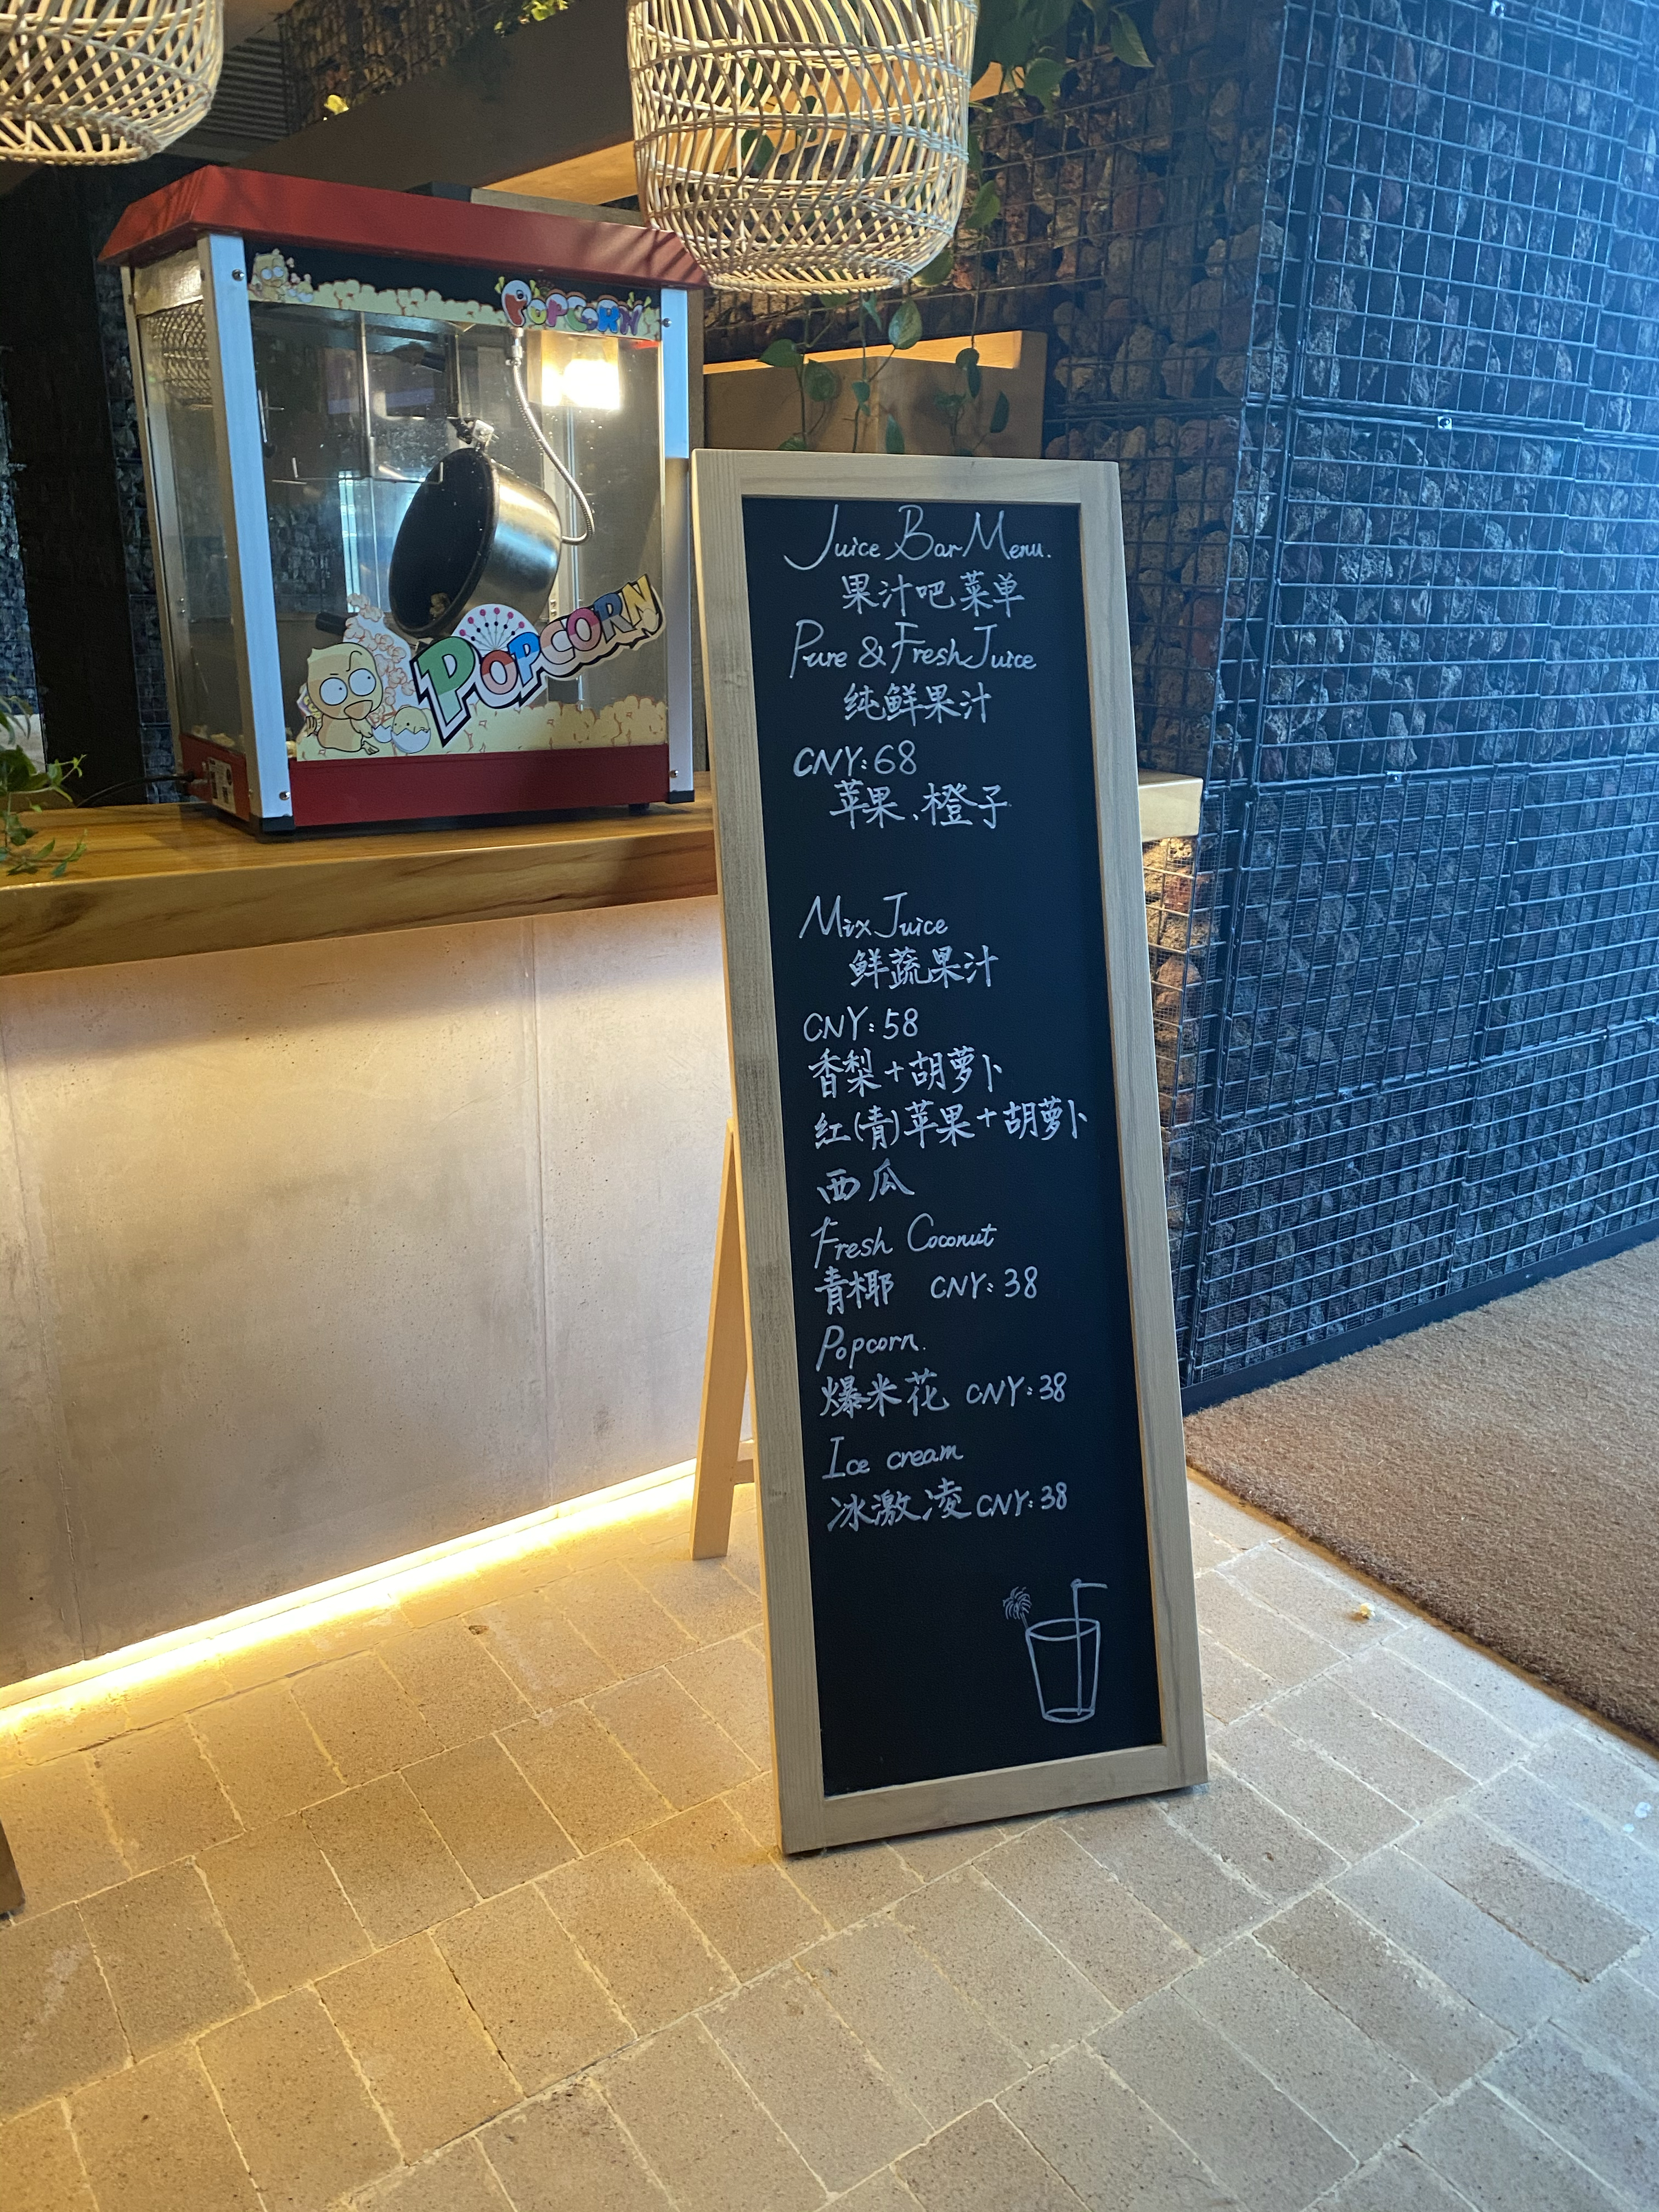 POPCORN
POPCORN
Juice Bar Menu.
果汁吧菜单
Pure & Fresh Juice
纯鲜果汁
CNY:68
苹果、橙子
Mix Juice
鲜蔬果汁
CNY:58
香梨+胡萝卜
红(青)苹果+胡萝卜
西瓜
Fresh Coconut
青椰 CNY:38
Popcorn.
爆米花 CNY:38
Ice cream
冰激凌 CNY:38